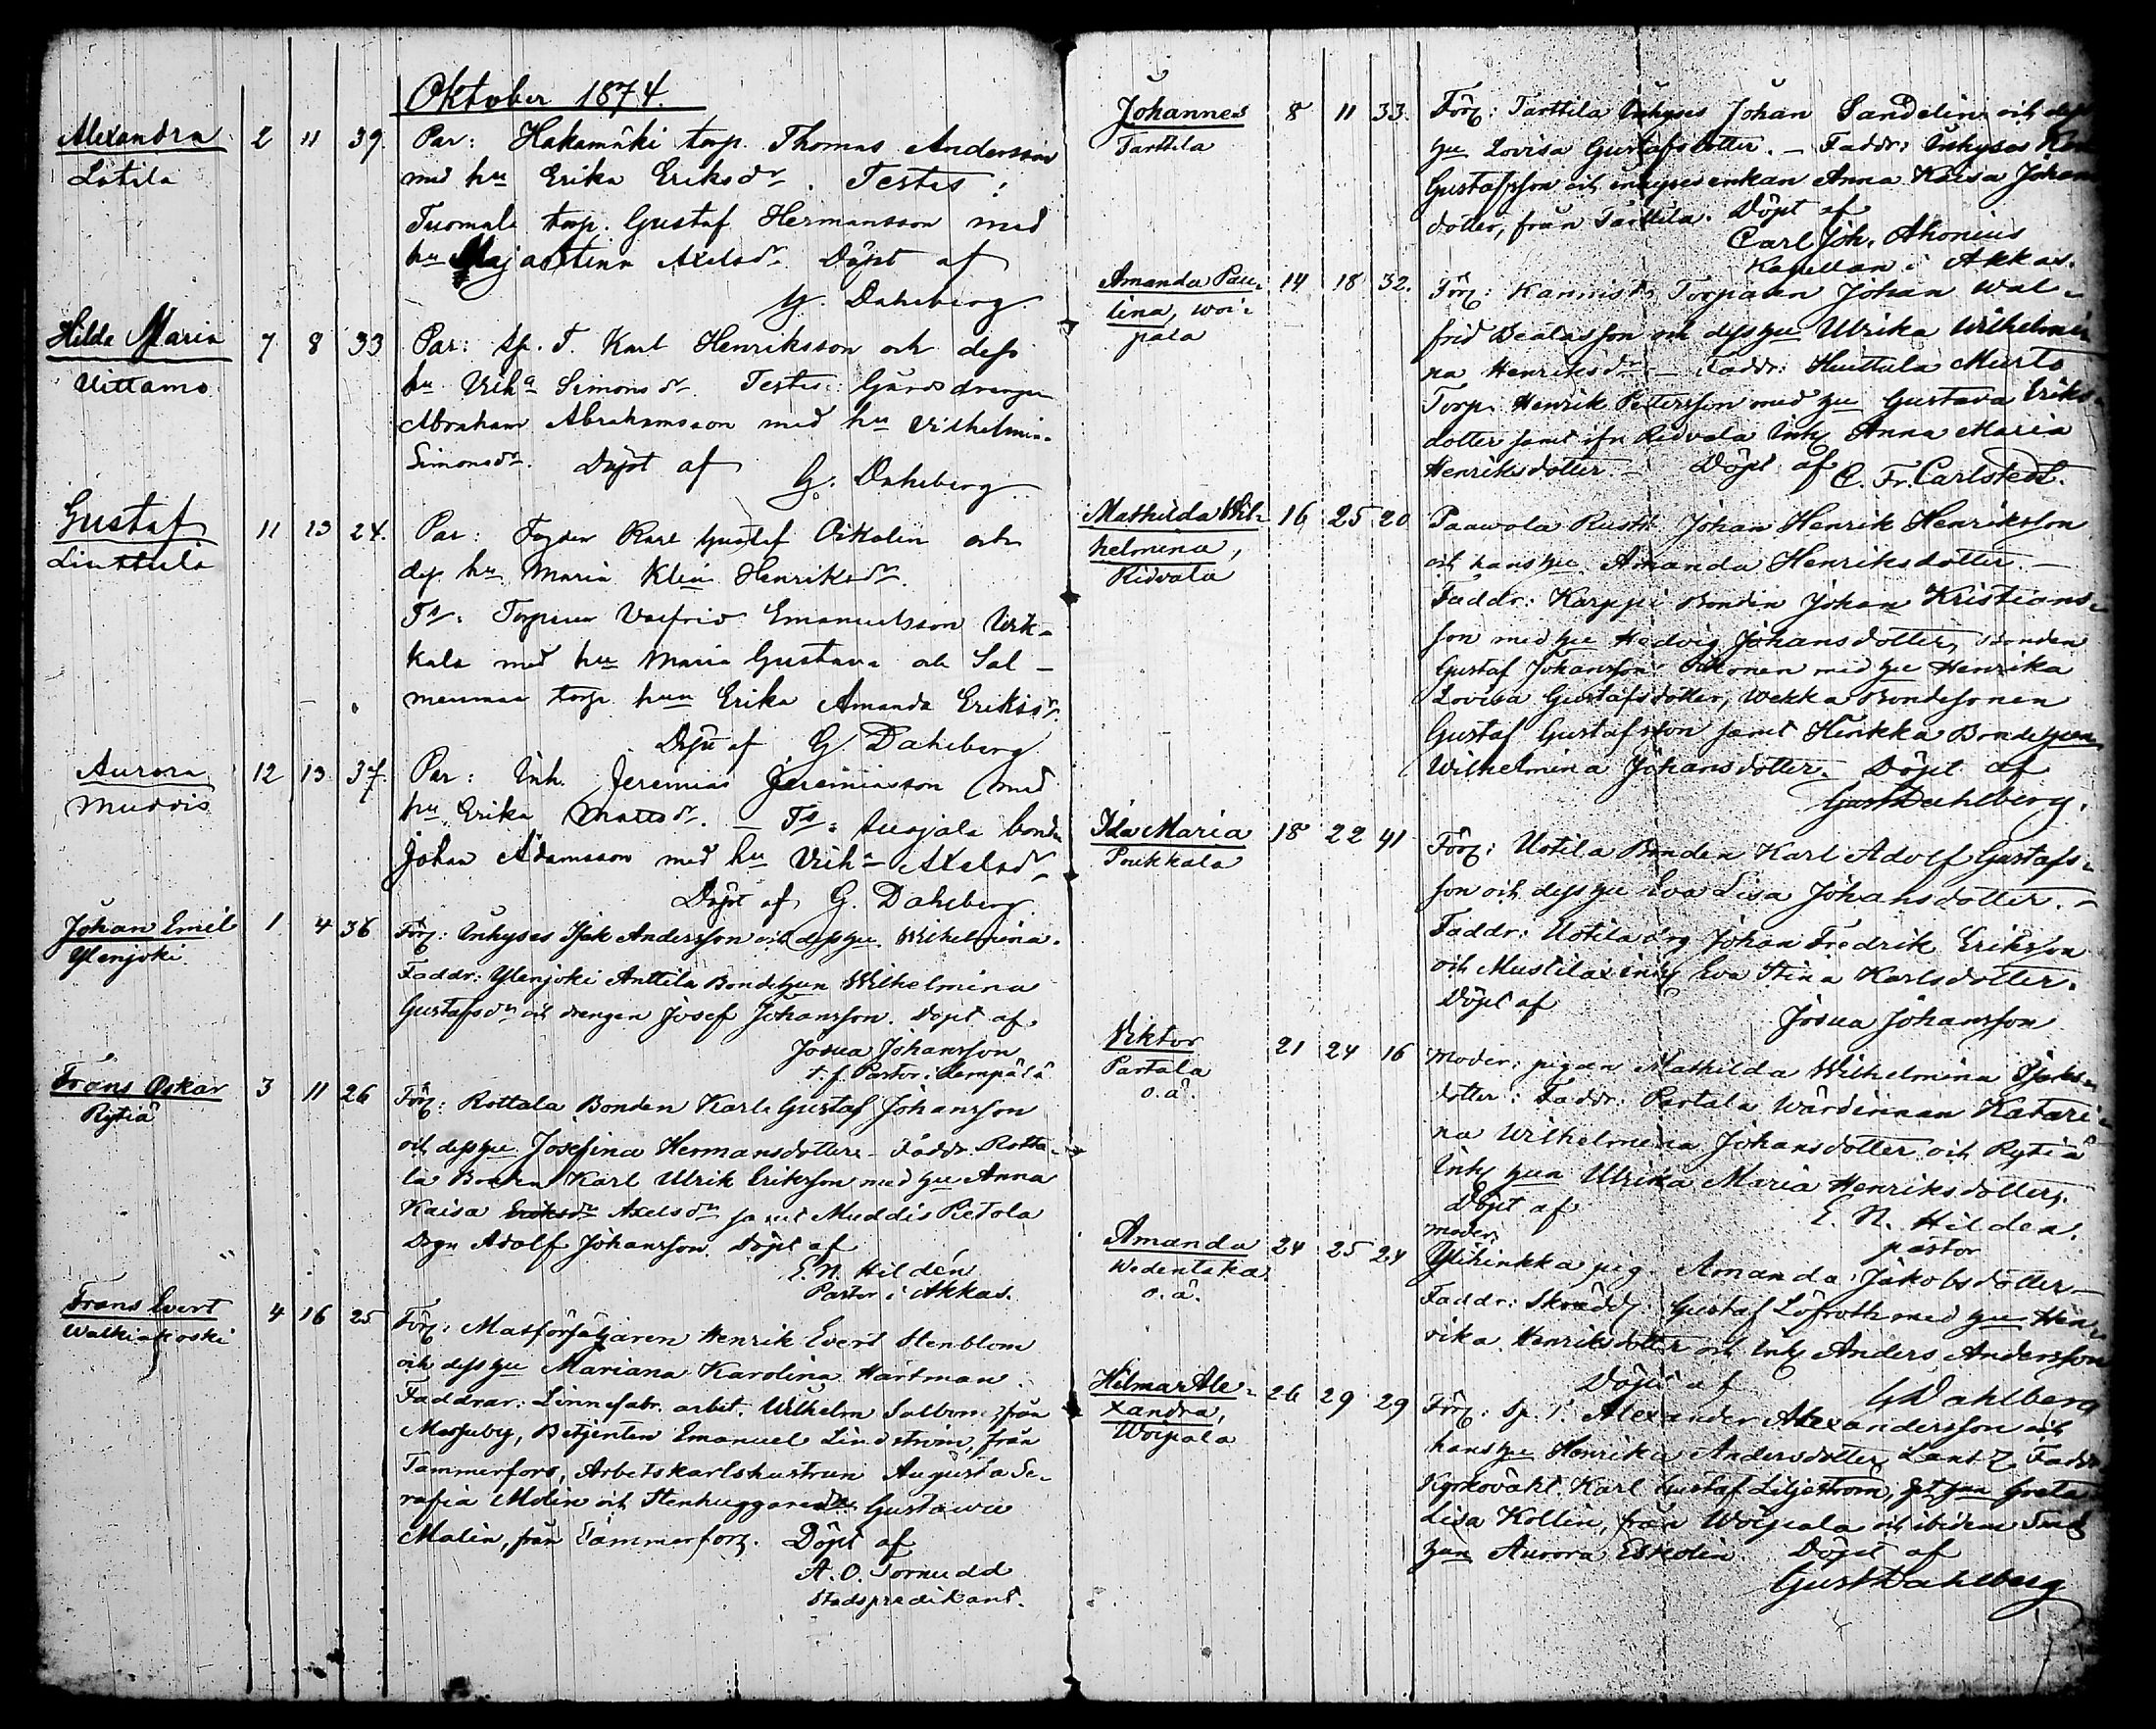 Oktober 1874.
Alexandra 2 11 39. Par: Hakamäki torp. Thomas Andersson
Lotila med hu Erika Eriksdr. Testes:
Tuomala torp. Gustaf Hermansson med
hu Majastina Axelsdr. Döpt af
G. Dahlberg
Hilda Maria 7 8 33 Par: Sp. T. Karl Henriksson och dess
Uittamo hu Ulrika Simonsdr. Testes: Gårdsdrengen
Abraham Abrahamsson med hu Vilhelmina
Simonsdr. Döpt af
G. Dahlberg.
Gustaf 11 13 24. Par: Karl Gustaf och
dess hu Maria Henriksdr.
Ts: Torparen Valfrid Emanuelsson
kala med hu Maria Gustava och Sal-
menmaa torp. hun Erika Amanda Eriksdr.
Döpt af G. Dahlberg
Aurora 12 13 37. Par: Inh. Jeremias Jeremiasson med
Muddis hu Erika Mattsdr. – Ts: bonden
Johan Adamsson med hu Axelsdr
Döpt af G. Dahlberg
Johan Emil 1 4 36 För: Inhyses Isak Andersson och dess hu Wilhelmina.
Ylenjoki Faddr: Ylenjoki Anttila Bondehun Wilhelmina
Gustafsdr och drengen Josef Johansson. Döpt af
Josua Johansson
t. f. Pastor i Lempälä
Frans Oskar 3 11 26 För: Rottala Bonden Karl Gustaf Johansson
Rytiä och dess hu Josefina Hermansdotter. – Faddr. Rotta-
la Bonden Karl Ulrik Eriksson med hu Anna
Kaisa Eriksdr Axelsdr samt Muddis Pietola
Drgn Adolf Johansson. Döpt af
E. N. Hildén
Pastor i Akkas.
Frans Evert 4 16 25 För: Matförsäljaren Henrik Evert Stenblom
Walkiakoski och dess hu Mariana Karolina Hartman.
Faddrar: Linnefabr. arbet. Wilhelm från
Massuby, Betjenten Emanuel Lindström, från
Tammerfors, Arbetskarlshustrun Augusta Se-
rafia Molin och Stenhuggare Gustawa
Malin, från Tammerfors. Döpt af
A. O. Tornudd
Stadspredikant.
Johannes 8 11 33. För: Tarttila Inhyses Johan Sandelin och dess
Tarttila hu Lovisa Gustafsdotter. – Faddr: Inhyses
Gustafsson och inhysesenkan Anna Kaisa Johans
dotter, från Tarttila. Döpt af
Carl Joh. Ahonius
Kapellan i Akkas.
Amanda Pau- 14 18 32. För: Kannisto Torparen Johan Wal-
lina, Woi- frid och dess hu Ulrika Wilhelmi-
pala na Henriksdr – Faddr: Huittula Murto
Torp. Henrik Pettersson med hu Gustava Eriks-
dotter samt ifr. Ridvala Inh. Anna Maria
Henriksdotter. – Döpt af C. Fr. Carlstedt.
Mathilda Wil- 16 25 20 Paawola Rusth. Johan Henrik Henriksson
helmina, och hans hu Amanda Henriksdotter. –
Ridvala Faddr: Karppi Bonden Johan Kristians-
son med hu Hedvig Johansdotter, Bonden
Gustaf Johansson med hu Henrika
Lovisa Gustafsdotter, Wekka Bondesonen
Gustaf Gustafsson samt Hirikka Bondehun
Wilhelmina Johansdotter. Döpt af
Gust Dahlberg.
Ida Maria 18 22 41 För: Uotila Bonden Karl Adolf Gustafs-
Roukkala son och dess hu Eva Lisa Johansdotter. –
Faddr: Uotila drg Johan Fredrik Eriksson
och Mustila inh. Eva Stina Karlsdotter.
Döpt af
Josua Johansson
Viktor 21 24 16 Moder: pigan Mathilda Wilhelmina Isaks-
Partala dotter: Faddr: Partala Wärdinnan Katari-
o.ä. na Wilhelmina Johansdotter och Rytiä
Inh. hun Ulrika Maria Henriksdotter.
Döpt af
E. N. Hilden.
pastor
Amanda 24 25 24 Moder:
Wedentaka Ylihinkka pig. Amanda Jakobsdotter –
o.ä. Faddr: Skrädd. Gustaf Löfroth med hu Hen-
rika Henriksdotter och Inh. Anders Andersson
Döpt af G Dahlberg
Hilma Ale- 26 29 29 För: Sp. T. Alexander Alexandersson och
xandra, hans hu Henrika Andersdotter Faddr.
Woipala Kyrkovakt. Karl Gustaf Liljeström, Greta
Lisa Kollin, från Woipala och ibidem
hun Aurora Eskolin. Döpt af
Gust Dahlberg